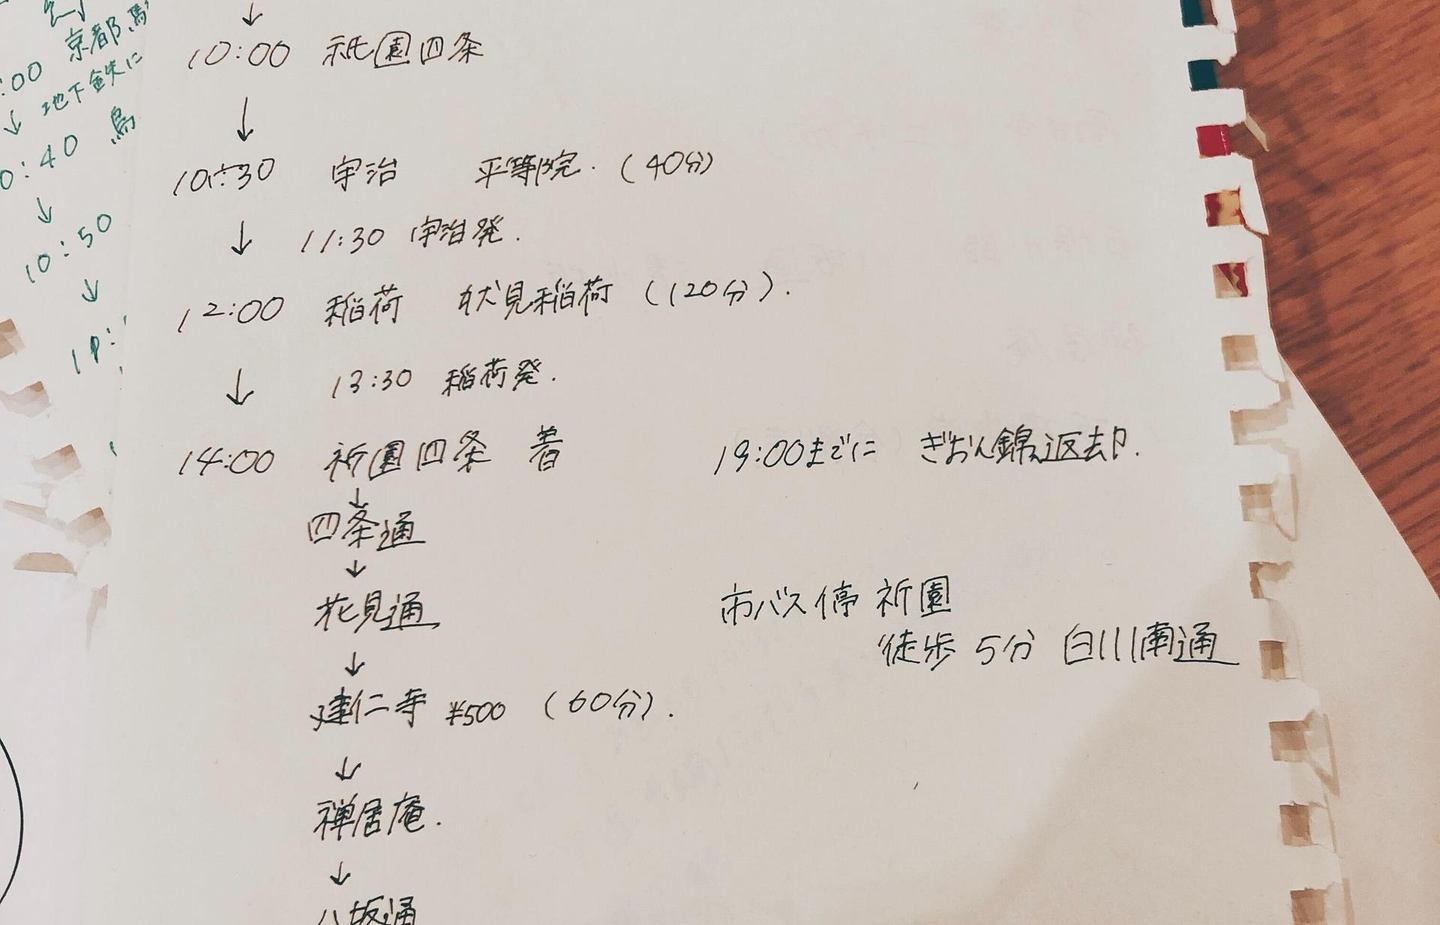 ↓
10:00 祇園四条
↓
10:30 宇治 平等院. (40分)
↓ 11:30 宇治発.
12:00 稲荷 伏見稲荷 (120分).
↓ 13:30 稲荷発.
14:00 祈園四条 着
↓
四条通
↓
花見通
↓
建仁寺 ¥500 (60分).
↓
禅居庵.
↓
八坂通
19:00までに ぎおん錦返却.
市バス停 祈園
徒歩 5分 白川南通
:00 京都駅
地下鉄に
↓
0:40 烏
↓
10:50
↓